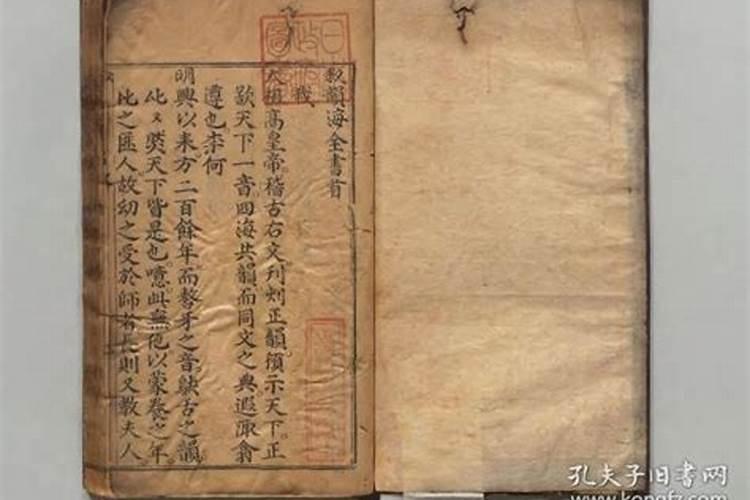 敘韻海全書首
我
太祖高皇帝稽古右文刋刻正韻頒示天下正
欲天下一音四海共韻而同文之典遐陬翕
遵也柰何
明興以来方二百餘年而聱牙之音鴃舌之韻
比比奕天下皆是也噫此無他以蒙養之年
比之匪人故幼之受於師者長則又教夫人
日本政府圖書
孔夫子旧书网
www.kongfz.com